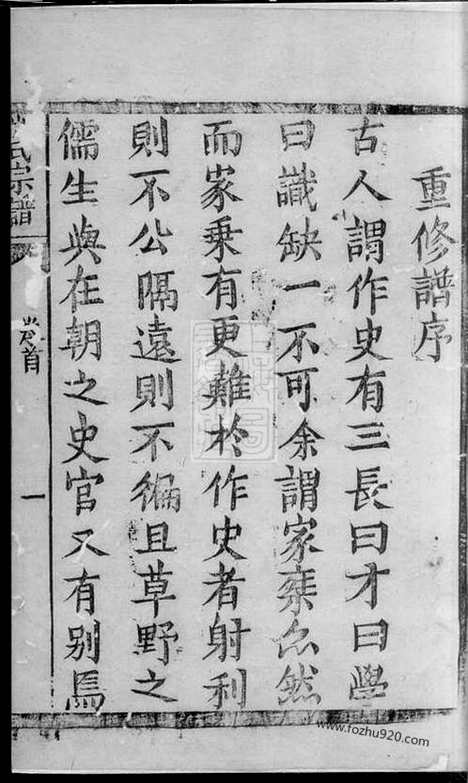 重修譜序
古人謂作史有三長曰才曰學
曰識缺一不可余謂家乗亦然
而家乗有更難於作史者射利
則不公隔遠則不徧且草野之
儒生與在朝之史官又有别焉
氏宗譜
卷首
一
www.fozhu920.com